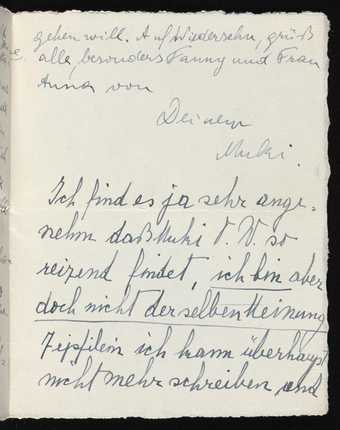 gehen will. Auf Wiedersehn, grüß
alle, besonders Fanny und Frau
Anna von
Deinem
Muki.
Ich find es ja sehr ange-
nehm daß Muki V. W. so
reizend findet, ich bin aber
doch nicht derselben Meinung
Zipfilein ich kann überhaupt
nicht mehr schreiben, und